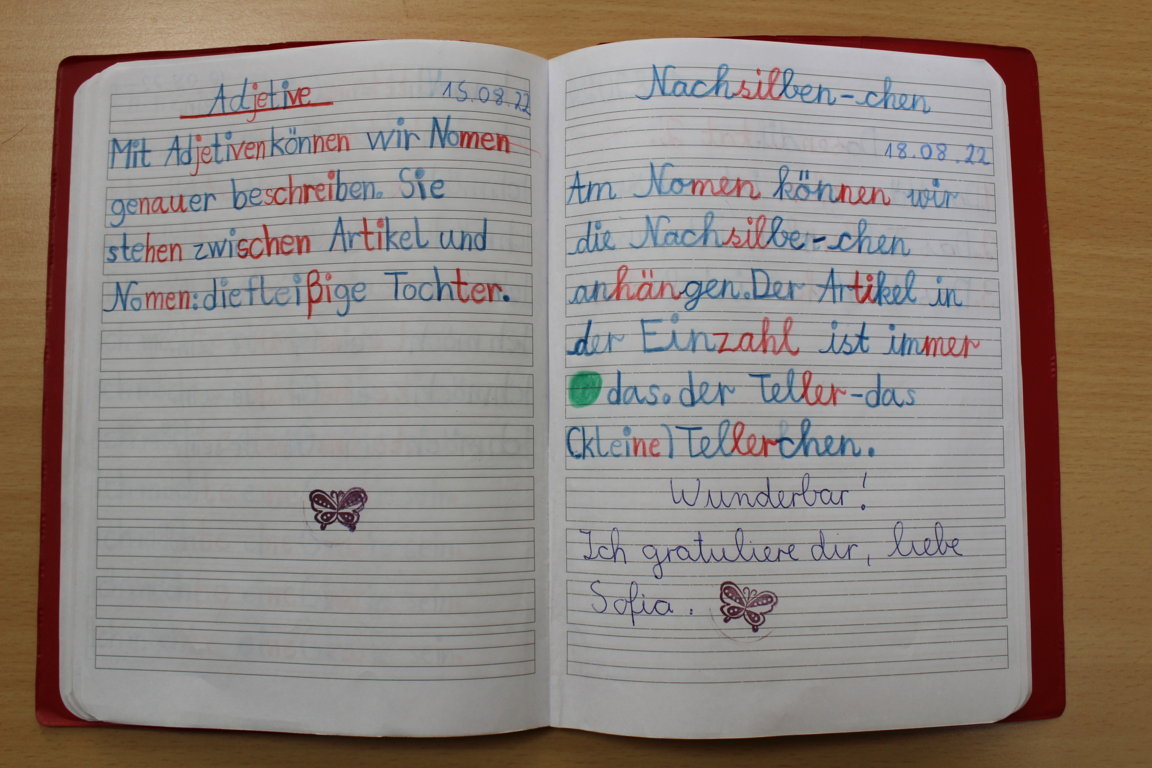 Adjetive
15.08.22
Mit Adjetiven können wir Nomen
genauer beschreiben. Sie
stehen zwischen Artikel und
Nomen: die fleißige Tochter.
Nachsilben-chen
18.08.22
Am Nomen können wir
die Nachsilbe-chen
anhängen. Der Artikel in
der Einzahl ist immer
das. der Teller-das
(kleine) Tellerchen.
Wunderbar!
Ich gratuliere dir, liebe
Sofia.